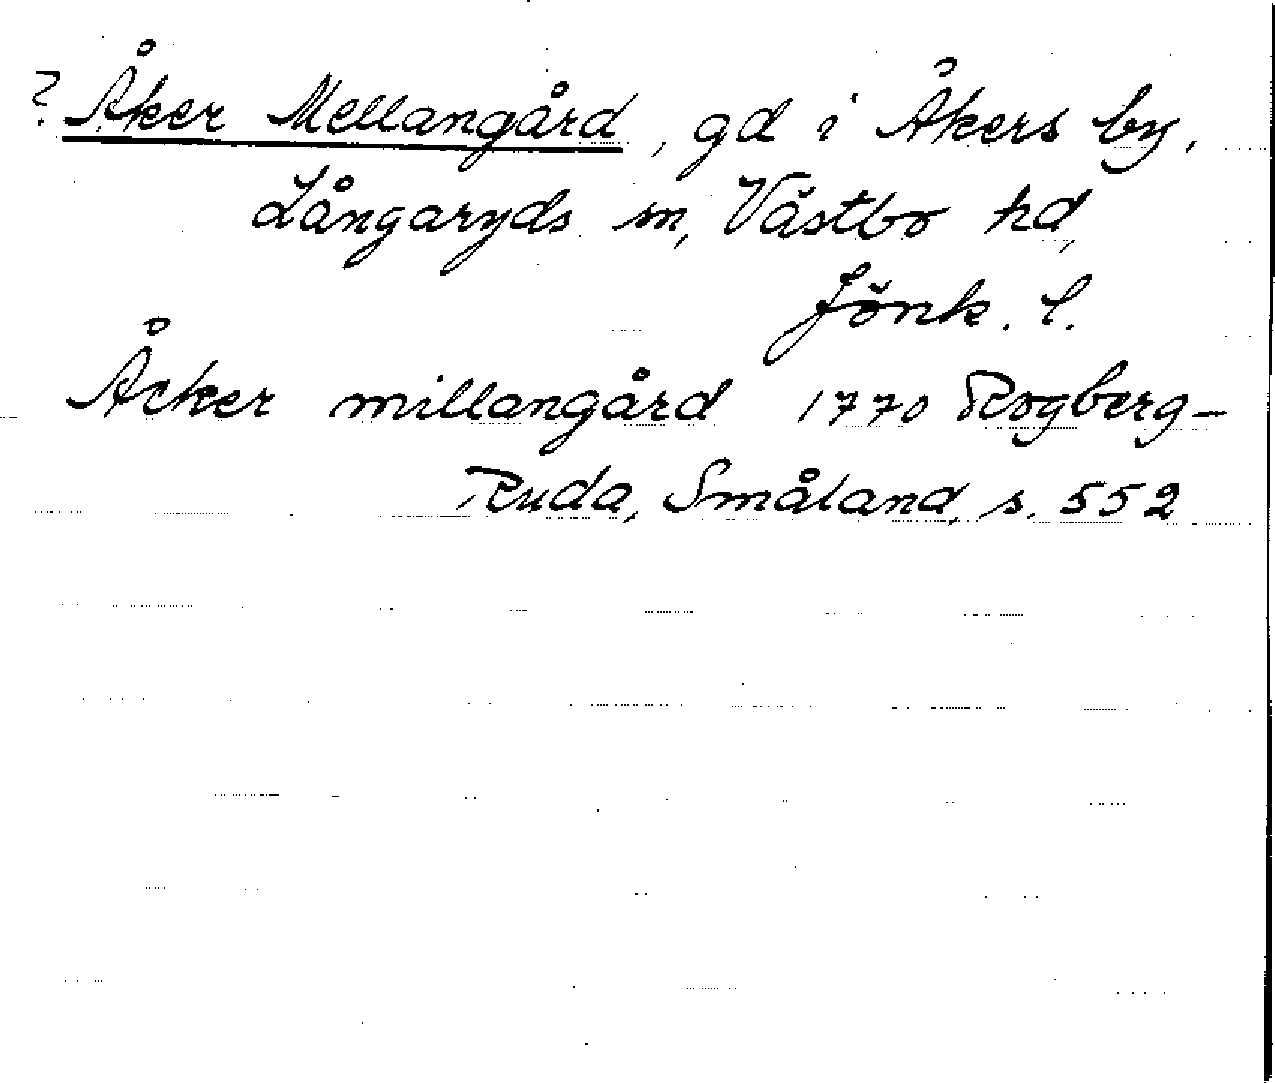 ? Åker Mellangård, gd i Åkers by,
Långaryds sn, Västbo hd,
Jönk. l.
Åcker millangård 1770 Rogberg-
Ruda, Småland, s. 552